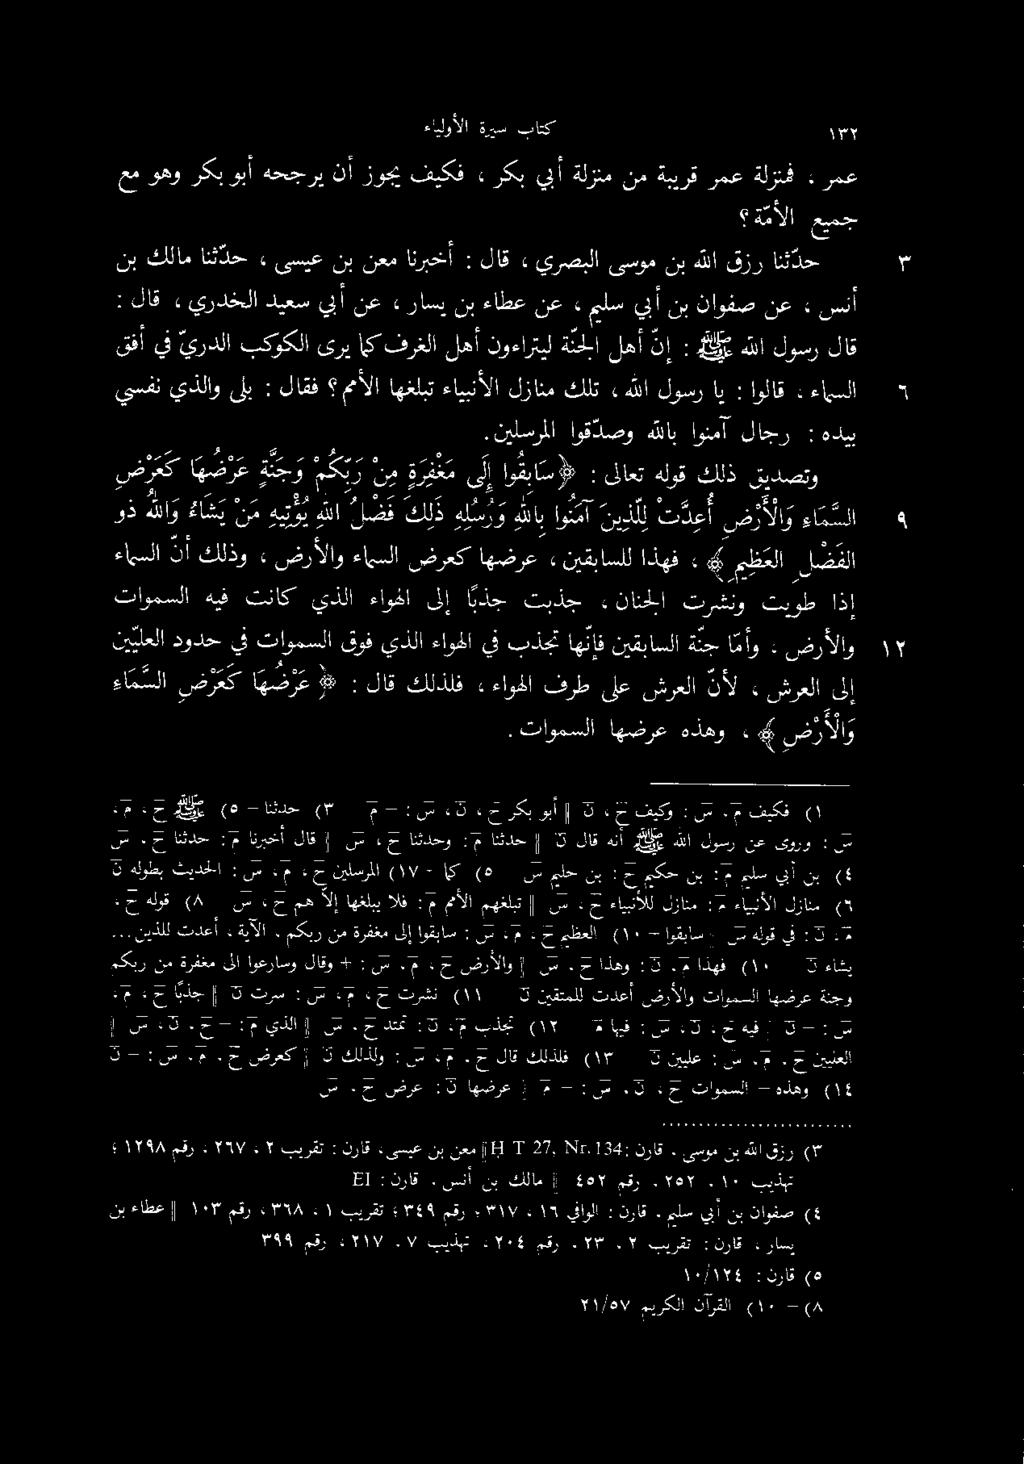 ١٣٢ كتاب سيرة الأولياء
عمر ، فمنزلة عمر قريبة من منزلة أبي بكر ، فكيف يجوز أن يرجحه أبو بكر وهو مع
جميع الأمّة ؟
٣ حدّثنا رزق الله بن موسى البصري ، قال : أخبرنا معن بن عيسى ، حدّثنا مالك بن
أنس ، عن صفوان بن أبي سليم ، عن عطاء بن يسار ، عن أبي سعيد الخدري ، قال :
قال رسول الله ﷺ : إنّ أهل الجنّة ليتراءون أهل الغرف كما يرى الكوكب الدريّ في أفق
٦ السماء ، قالوا : يا رسول الله ، تلك منازل الأنبياء تبلغها الأمم ؟ فقال : بلى والذي نفسي
بيده : رجال آمنوا بالله وصدّقوا المرسلين .
وتصديق ذلك قوله تعالى : ﴿سَابِقُوا إِلَى مَغْفِرَةٍ مِنْ رَبِّكُمْ وَجَنَّةٍ عَرْضُهَا كَعَرْضِ
٩ السَّمَاءِ وَالْأَرْضِ أُعِدَّتْ لِلَّذِينَ آمَنُوا بِاللهِ وَرُسُلِهِ ذَلِكَ فَضْلُ اللهِ يُؤْتِيهِ مَنْ يَشَاءُ وَاللهُ ذو
الفَضْلِ العَظِيمِ﴾ ، فهذا للسابقين ، عرضها كعرض السماء والأرض ، وذلك أنّ السماء
إذا طويت ونشرت الجنان ، جذبت جذبًا إلى الهواء الذي كانت فيه السموات
١٢ والأرض ، وأمّا جنّة السابقين فإنّها تجذب في الهواء الذي فوق السموات في حدود العليّين
إلى العرش ، لأنّ العرش على طرف الهواء ، فلذلك قال : ﴿عَرْضُهَا كَعَرْضِ السَّمَاءِ
وَالْأَرْضِ﴾ ، وهذه عرضها السموات .
١) فكيف م ، س : وكيف ح ، ن ‖ أبو بكر ح ، ن ، س : – م ٣) حدثنا – ٥) ﷺ ح ، م ،
س : وروى عن رسول الله ﷺ أنه قال ن ‖ حدثنا م : وحدثنا ح ، س ‖ قال أخبرنا م : حدثنا ح ، س
٤) بن أبي سليم م : بن حكيم ح : بن مليح س ٥) كما – ٧) المرسلين ح ، م ، س : الحديث بطوله ن
٦) منازل الأنبياء م : منازل للأنبياء ح ، س ‖ تبلغهم الأمم م : فلا يبلغها إلّا هم ح ، س ٨) قوله ح ،
م ، ن : في قوله س ‖ سابقوا – ١٠) العظيم ح ، م ، س : سابقوا إلى مغفرة من ربكم ، الآية ، أعدت للذين ...
يشاء ن ١٠) فهذا م ، ن : وهذا ح ، س ‖ والأرض ح ، م ، س : + وقال وسارعوا الى مغفرة من ربكم
وجنة عرضها السموات والأرض أعدت للمتقين ن ١١) نشرت ح ، م ، س : سرت ن ‖ جذبًا ح ، م ،
س : – ن ‖ فيه ح ، ن ، س : فيها م ١٢) تجذب م ، ن : تمتد ح ، س ‖ الذي م : – ح ، ن ، س ‖
العليين ح ، م ، س : عليين ن ١٣) فلذلك قال ح ، م ، س : ولذلك ن ‖ كعرض ح ، م ، س : – ن
١٤) وهذه – السموات ح ، ن ، س : – م ‖ عرضها ن : عرض ح ، س
٣) رزق الله بن موسى ، قارن : H T 27, Nr. 134 ‖ معن بن عيسى ، قارن : تقريب ٢ ، ٢٦٧ ، رقم ١٢٩٨ ؛
تهذيب ١٠ ، ٢٥٢ ، رقم ٤٥٢ ‖ مالك بن أنس ، قارن : EI
٤) صفوان بن أبي سليم ، قارن : الوافي ١٦ ، ٣١٧ ، رقم ٣٤٩ ؛ تقريب ١ ، ٣٦٨ ، رقم ١٠٣ ‖ عطاء بن
يسار ، قارن : تقريب ٢ ، ٢٣ ، رقم ٢٠٤ ، تهذيب ٧ ، ٢١٧ ، رقم ٣٩٩
٥) قارن : ١٠/١٢٤
٨) – ١٠) القرآن الكريم ٢١/٥٧